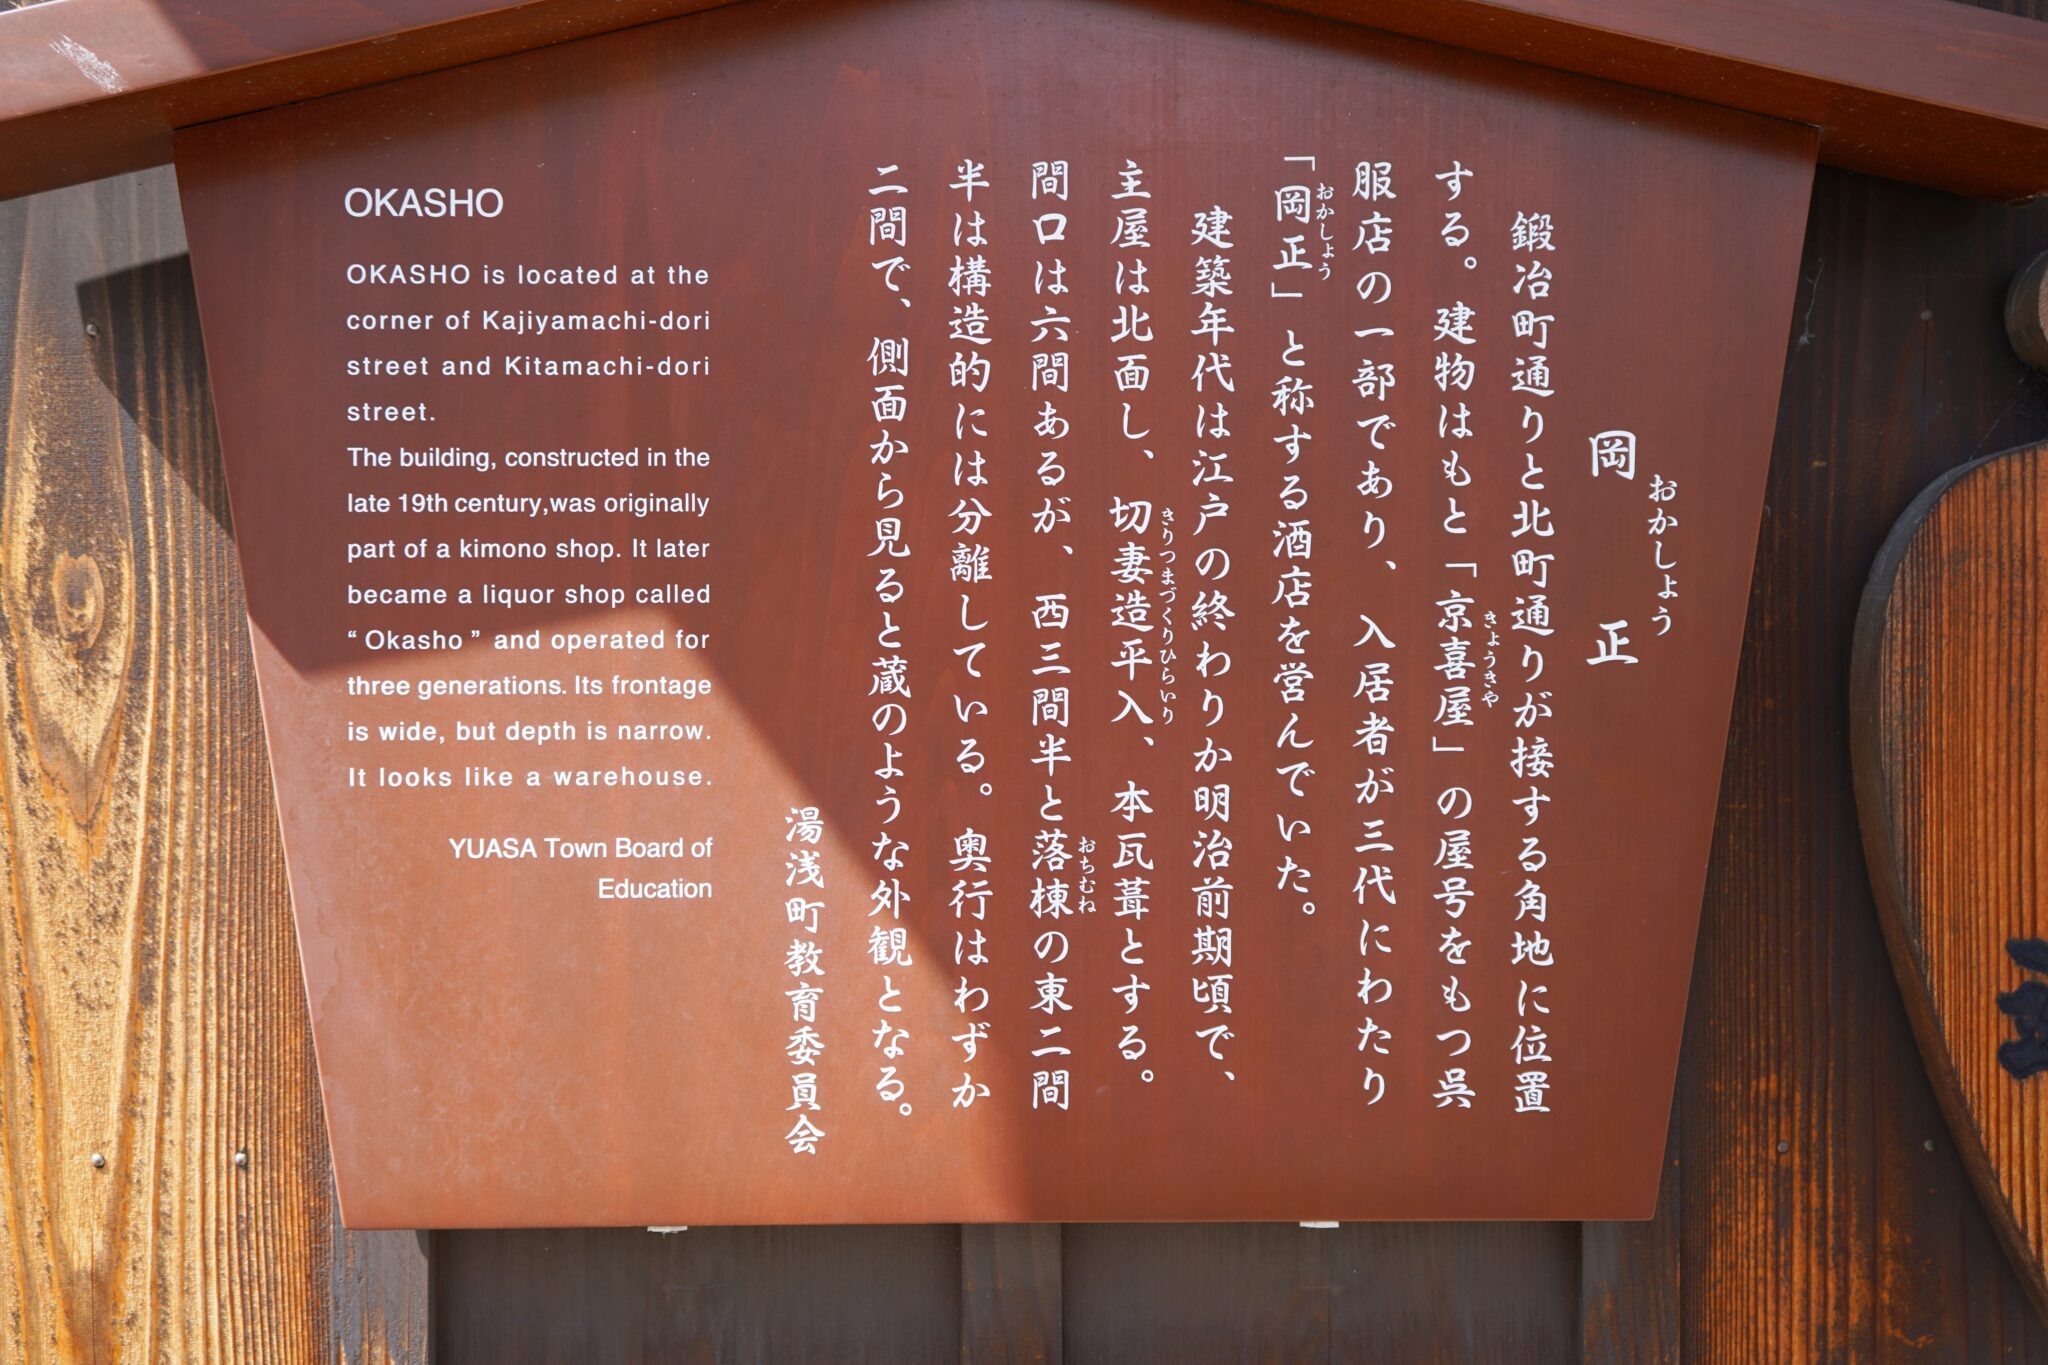 岡正
おかしょう
鍛冶町通りと北町通りが接する角地に位置
する。建物はもと「京喜屋」の屋号をもつ呉
きょうきや
服店の一部であり、入居者が三代にわたり
「岡正」と称する酒店を営んでいた。
おかしょう
建築年代は江戸の終わりか明治前期頃で、
主屋は北面し、切妻造平入、本瓦葺とする。
きりつまづくりひらいり
間口は六間あるが、西三間半と落棟の東二間
おちむね
半は構造的には分離している。奥行はわずか
二間で、側面から見ると蔵のような外観となる。
湯浅町教育委員会
OKASHO
OKASHO is located at the
corner of Kajiyamachi-dori
street and Kitamachi-dori
street.
The building, constructed in the
late 19th century,was originally
part of a kimono shop. It later
became a liquor shop called
“ Okasho ” and operated for
three generations. Its frontage
is wide, but depth is narrow.
It looks like a warehouse.
YUASA Town Board of
Education